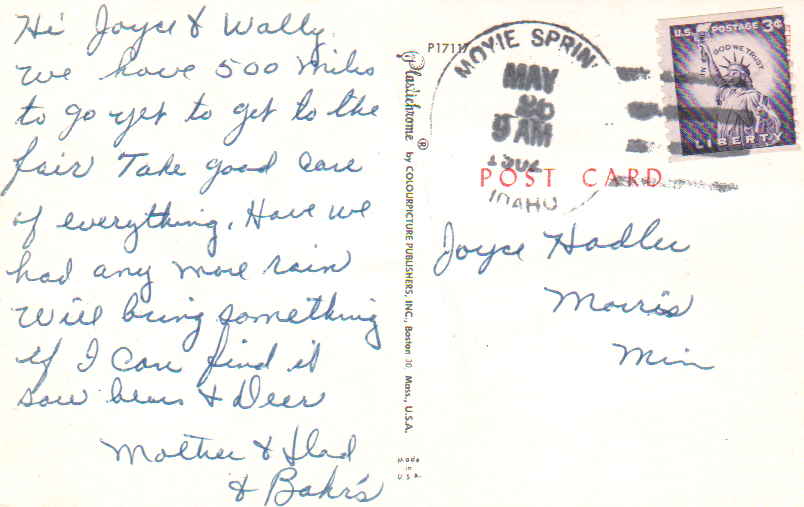 Hi Joyce & Wally
we have 500 miles
to go yet to get to the
fair Take good care
of everything. Have we
had any more rain
Will bring something
if I can find it
saw bears & Deer
Mother & Dad
& Bahr's
P17117
Plastichrome ® by COLOURPICTURE PUBLISHERS, INC., Boston 30 Mass., U.S.A.
Made
in
U.S.A.
MOYIE SPRIN
MAY
26
9 AM
IDAHO
U.S. POSTAGE 3¢
IN GOD WE TRUST
LIBERTY
POST CARD
Joyce Hadler
Morris
Min